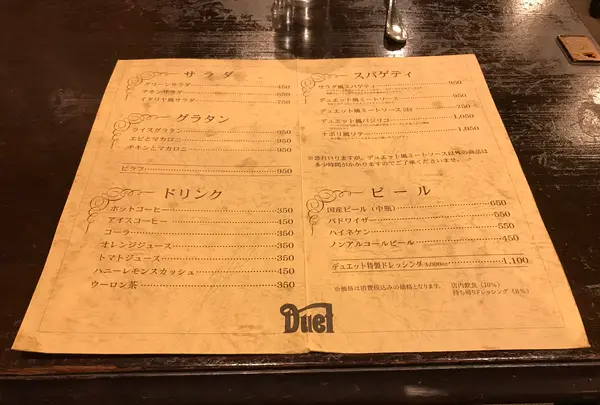 サラダ
グリーンサラダ 450
チキンサラダ 650
イタリヤ風サラダ 750
グラタン
ライスグラタン 950
エビとマカロニ 950
チキンとマカロニ 950
ピラフ 950
ドリンク
ホットコーヒー 350
アイスコーヒー 450
コーラ 350
オレンジジュース 350
トマトジュース 350
ハニーレモンスカッシュ 450
ウーロン茶 350
スパゲティ
サラダ風スパゲティ 950
デュエット風ミートソース 950
デュエット風ミートソース 750
デュエット風バジリコ 1,050
ナポリ風ソテー 1,050
※恐れいりますが、デュエット風ミートソース以外の商品は
多少時間がかかりますのでご了承くださいませ。
ビール
国産ビール（中瓶） 650
バドワイザー 550
ハイネケン 550
ノンアルコールビール 450
デュエット特製ドレッシング 1,100
※価格は消費税込みの価格となります。 店内飲食（10%）
持ち帰りドレッシング（8%）
Duet